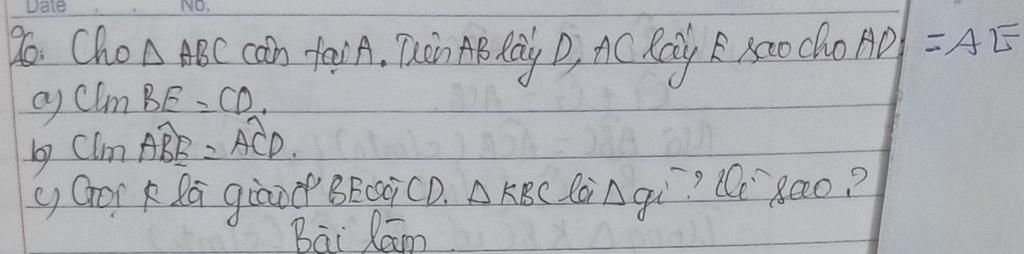 Date No.
26. Cho Δ ABC cân tại A. Trên AB lấy D, AC lấy E sao cho AD = AE
a) Clm BE = CD.
b) Clm ABE = ACD.
c) Gọi K là giao đ' BE và CD. Δ KBC là Δ gì? Vì sao?
Bài làm